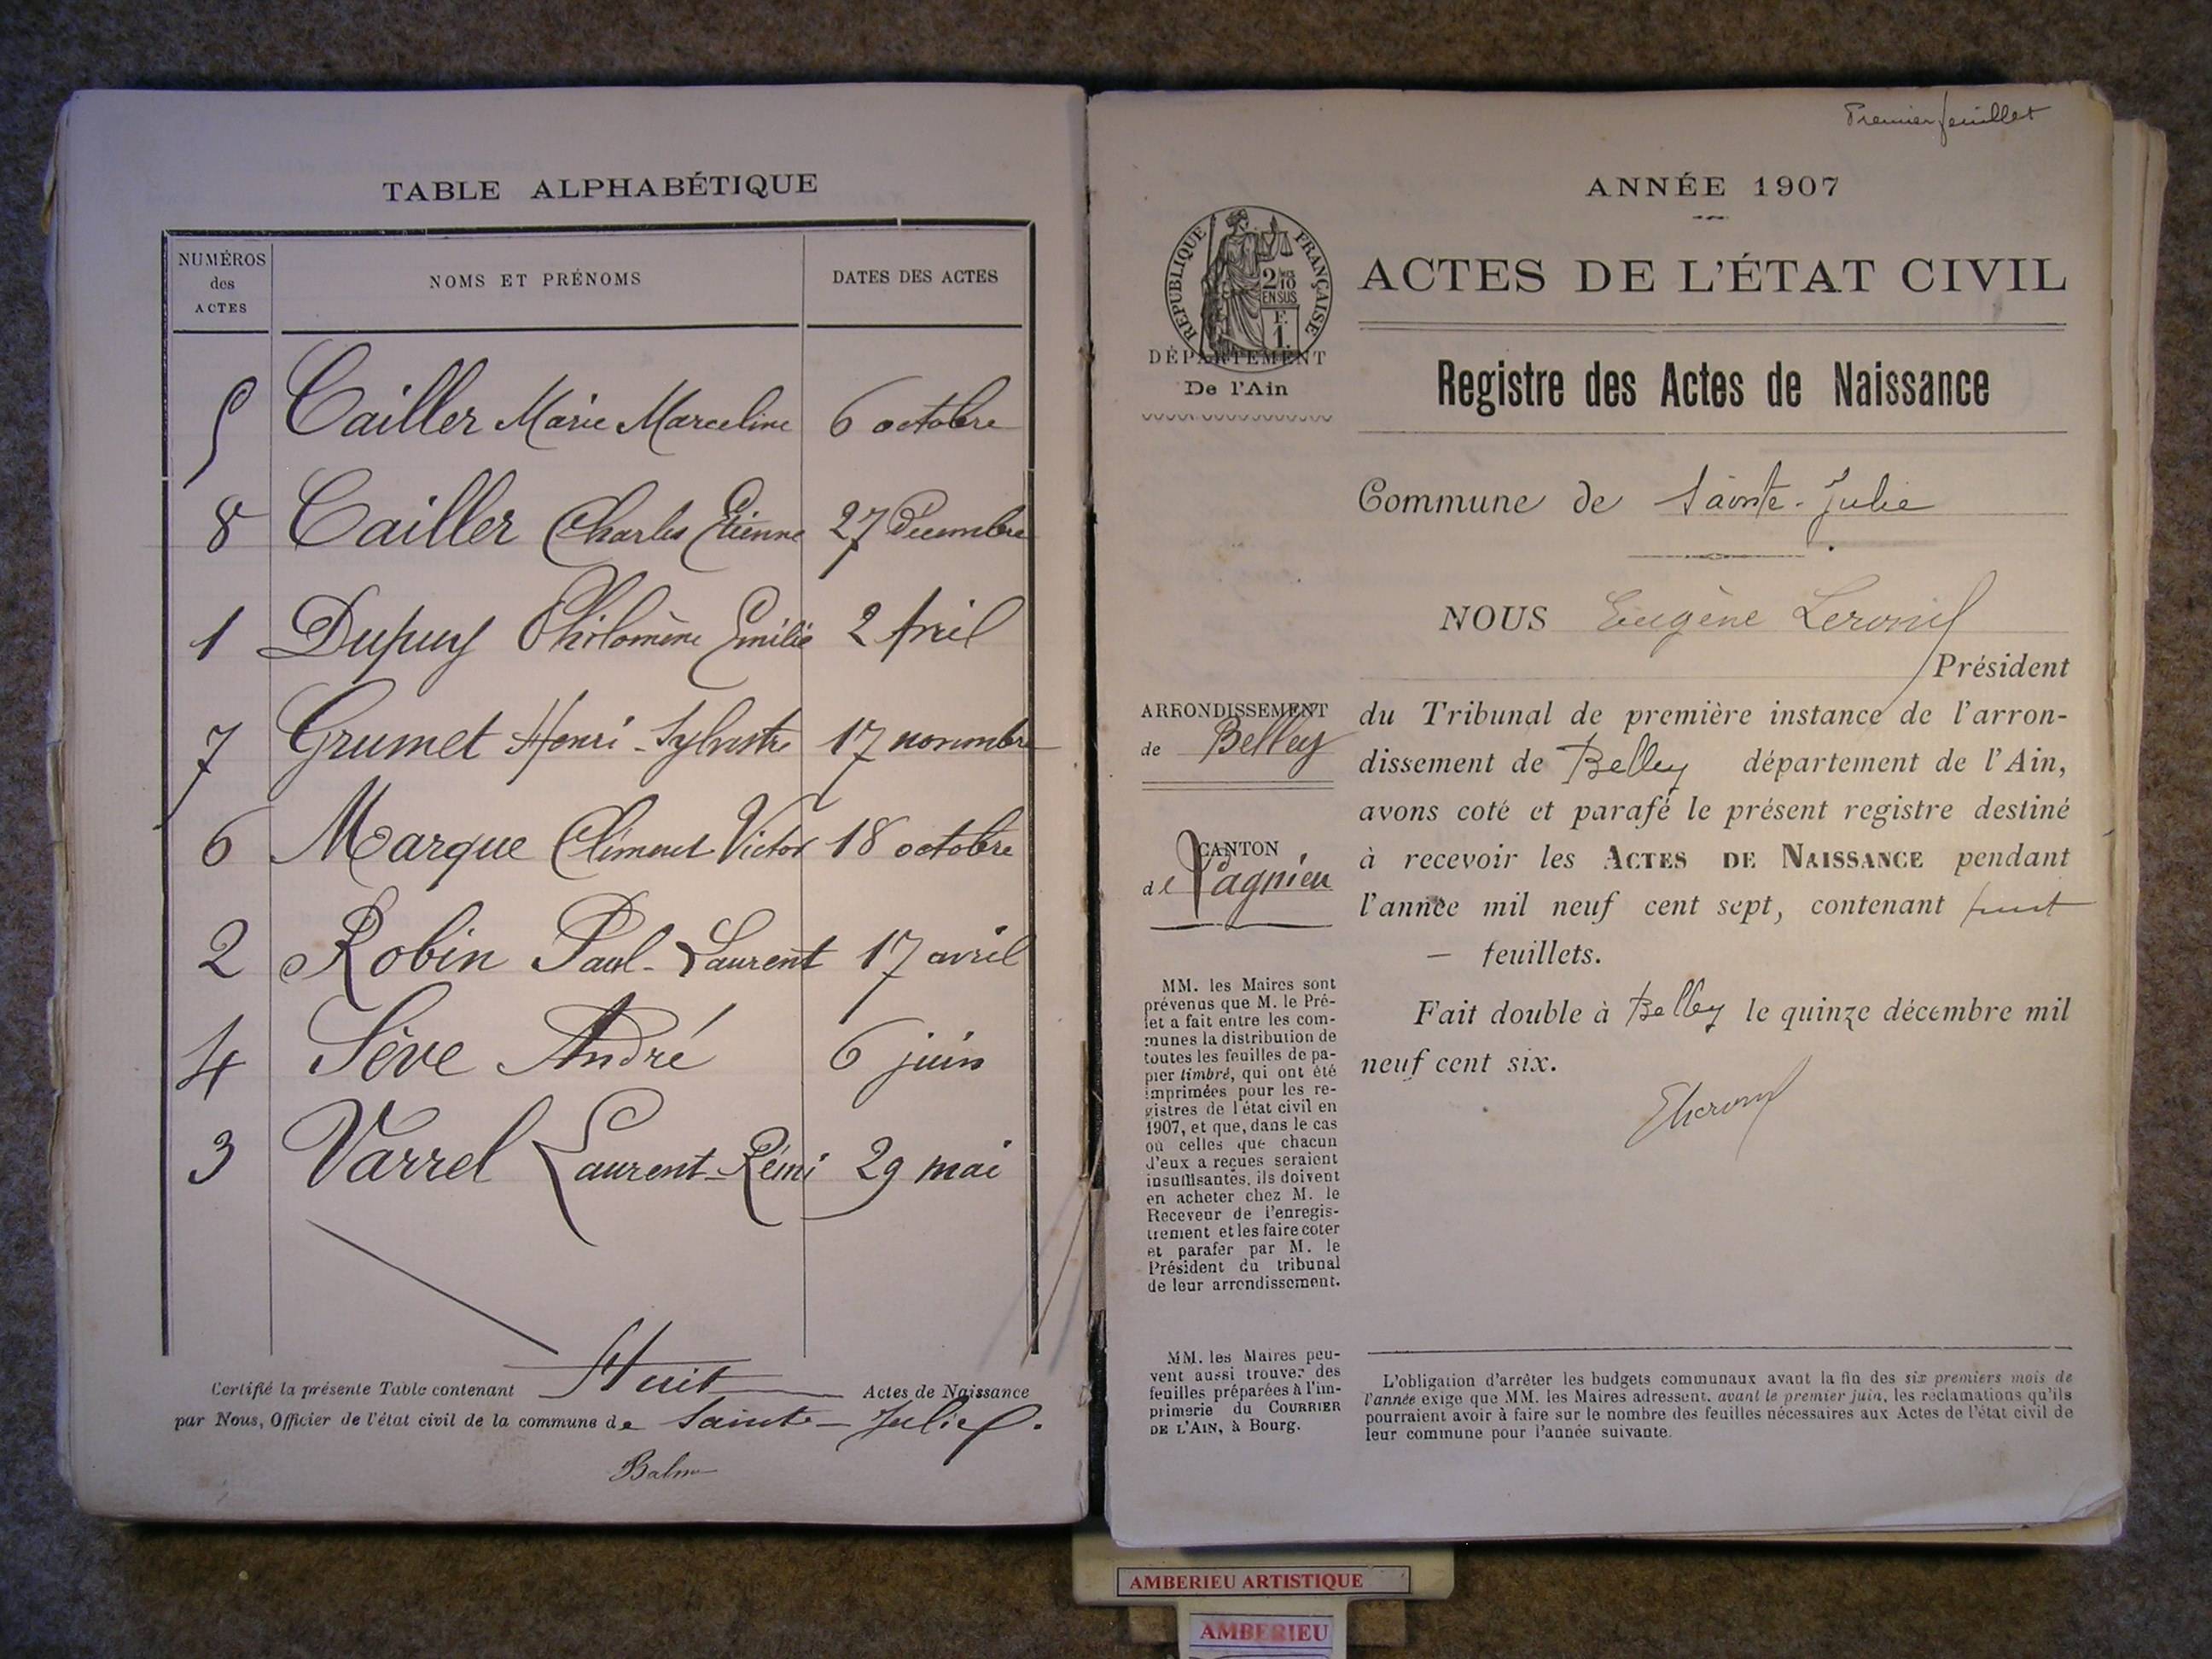 TABLE ALPHABÉTIQUE
NUMÉROS
des
ACTES
NOMS ET PRÉNOMS
DATES DES ACTES
5 Cailler Marie Marceline 6 octobre
8 Cailler Charles Etienne 27 Décembre
1 Dupuy Philomène Emilie 2 Avril
7 Grumet Henri-Sylvestre 17 novembre
6 Marque Clément-Victor 18 octobre
2 Robin Paul-Laurent 17 avril
4 Sève André 6 juin
3 Varrel Laurent-Rémi 29 mai
Certifié la présente Table contenant Huit Actes de Naissance
par Nous, Officier de l'état civil de la commune de Sainte-Julie.
Premier feuillet
ANNÉE 1907
RÉPUBLIQUE FRANÇAISE
2/10
EN SUS
F.
1.
DÉPARTEMENT
De l'Ain
ACTES DE L'ÉTAT CIVIL
Registre des Actes de Naissance
Commune de Sainte-Julie
NOUS Eugène
Président
ARRONDISSEMENT
de Belley
du Tribunal de première instance de l'arron-
dissement de Belley département de l'Ain,
avons coté et parafé le présent registre destiné
à recevoir les ACTES DE NAISSANCE pendant
l'année mil neuf cent sept, contenant huit
— feuillets.
Fait double à Belley le quinze décembre mil
neuf cent six.
CANTON
de Lagnieu
MM. les Maires sont
prévenus que M. le Pré-
fet a fait entre les com-
munes la distribution de
toutes les feuilles de pa-
pier timbré, qui ont été
imprimées pour les re-
gistres de l'état civil en
1907, et que, dans le cas
où celles que chacun
d'eux a reçues seraient
insuffisantes, ils doivent
en acheter chez M. le
Receveur de l'enregis-
trement et les faire coter
et parafer par M. le
Président du tribunal
de leur arrondissement.
MM. les Maires peu-
vent aussi trouver des
feuilles préparées à l'im-
primerie du COURRIER
DE L'AIN, à Bourg.
L'obligation d'arrêter les budgets communaux avant la fin des six premiers mois de
l'année exige que MM. les Maires adressent, avant le premier juin, les réclamations qu'ils
pourraient avoir à faire sur le nombre des feuilles nécessaires aux Actes de l'état civil de
leur commune pour l'année suivante.
AMBERIEU ARTISTIQUE
AMBERIEU